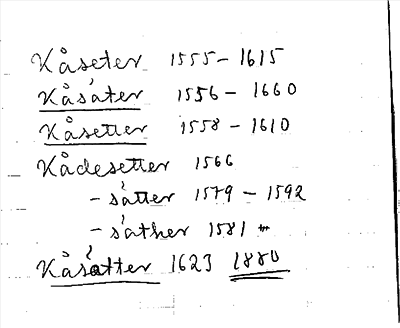 Kåseter 1555 - 1615
Kåsäter 1556 - 1660
Kåsetter 1558 - 1610
Kådesetter 1566
- sätter 1579 - 1592
- säther 1581
Kåsätter 1623 1880